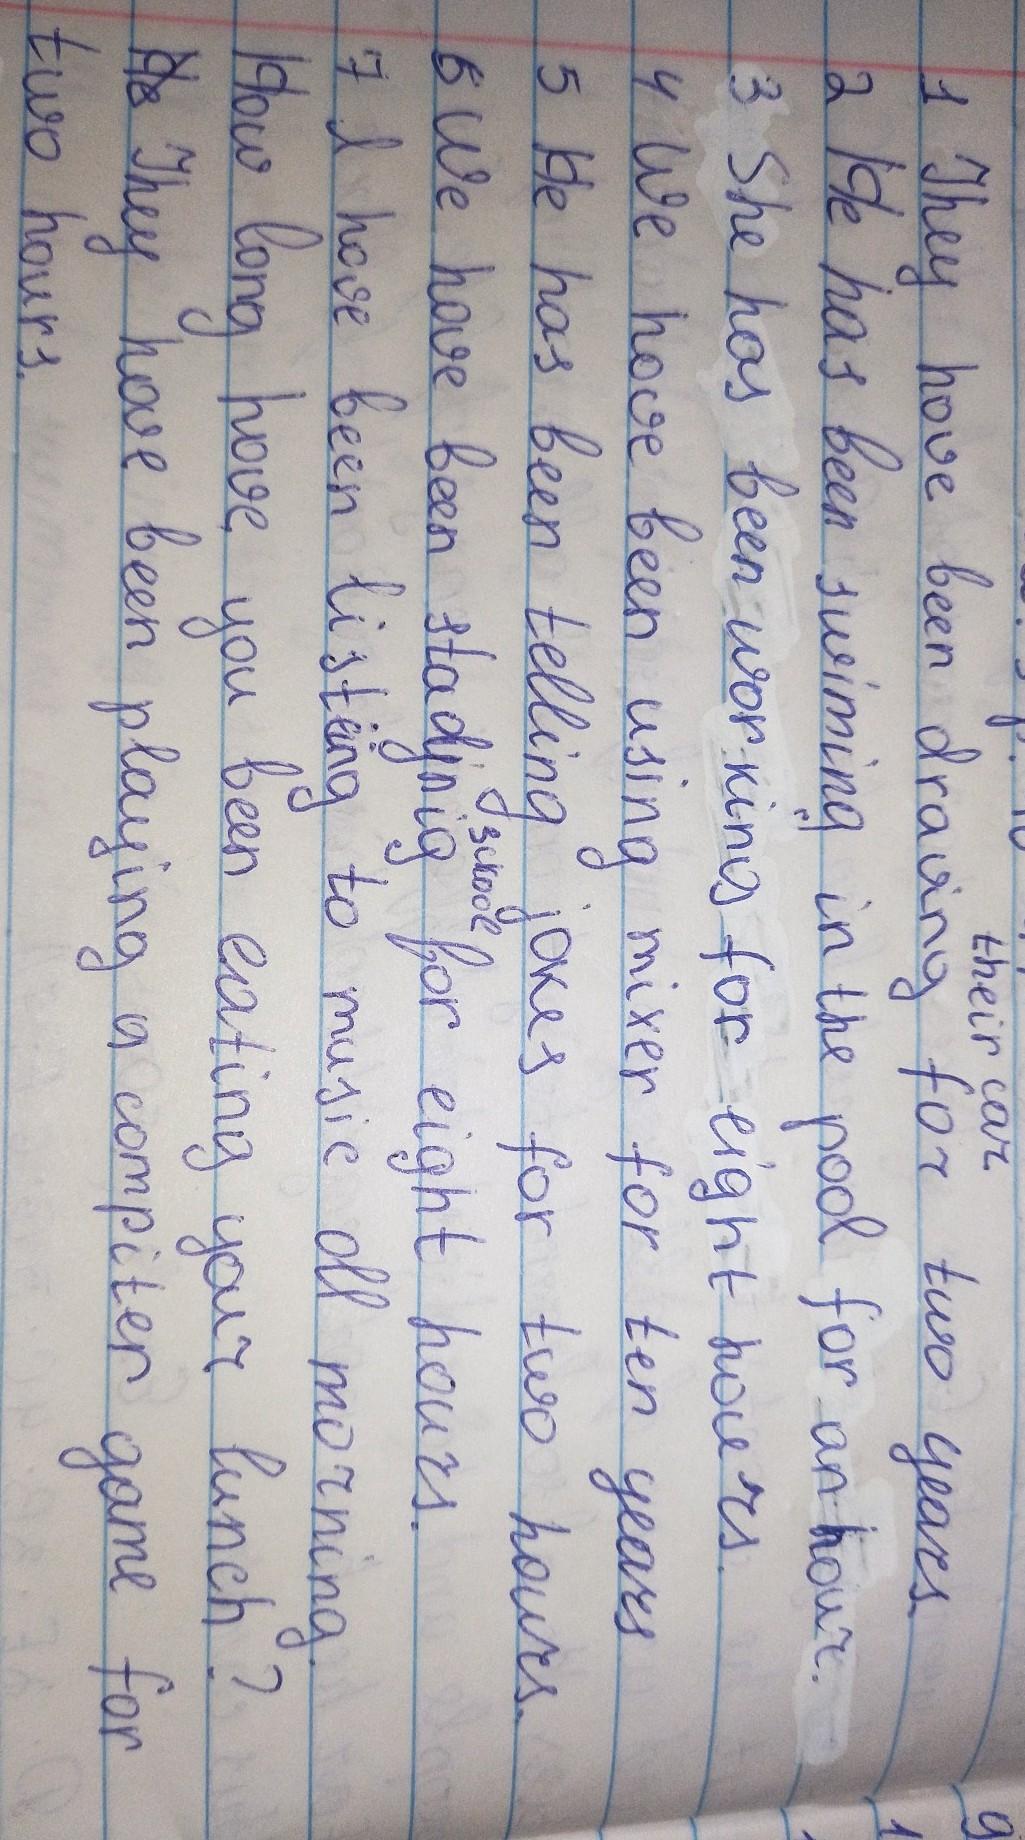 their car
1 They have been draving for two years.
2 He has been swiming in the pool for an hour.
3 She has been working for eight houers.
4 We have been using mixer for ten years
5 He has been telling jokes for two hours.
school
6 We have been stadjnig for eight hours.
7 I have been listing to music oll morning.
How long have you been eating your lunch?
8 They have been playing a compiter game for
two hours.